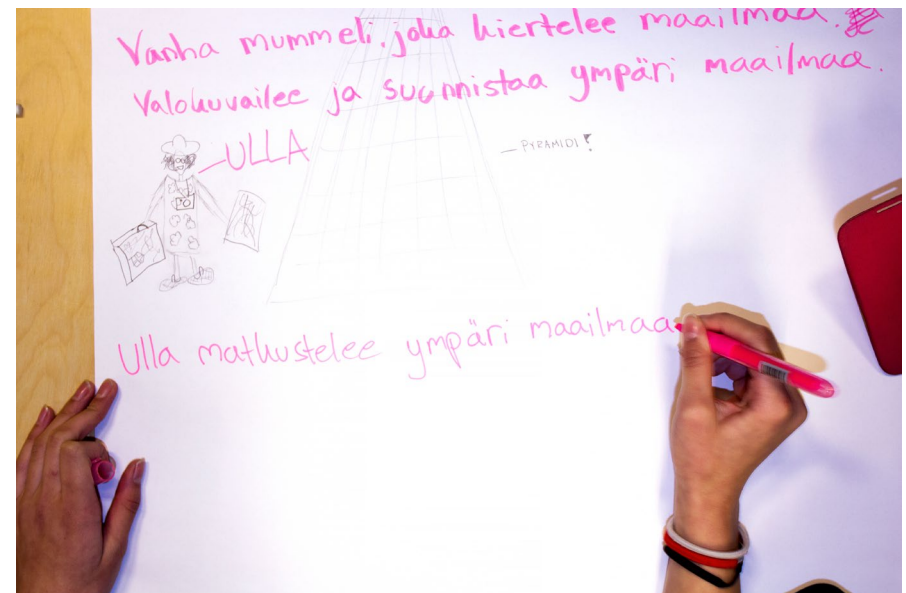 Vanha mummeli, joka kiertelee maailmaa.
Valokuvailee ja suunnistaa ympäri maailmaa.
ULLA
PYRAMIDI!
Ulla matkustelee ympäri maailmaa